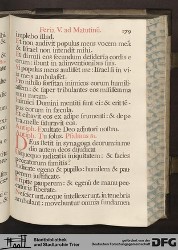 Feria V. ad Matutinū. 179
implebo illud.
Et non audivit populus meus vocem meā
& Israel non intendit mihi.
Et dimisi eos secundum desideria cordis e-
orum: ibunt in adinventionibus suis.
Si populus meus audisset me: Israel si in vi-
is meis ambulasset
Pro nihilo forsitan inimicos eorum humi-
liassem: & super tribulantes eos misissem ma-
num meam.
Inimici Domini mentiti sunt ei: & erit tē-
pus eorum in sæcula.
Et cibavit eos ex adipe frumenti: & de pe-
tra, melle saturavit eos.
Exultate Deo adjutori nostro.
Tu solus. Psalmus 81.
Deus stetit in synagoga deorum: in me-
dio autem deos dijudicat
Usquequo judicatis iniquitatem: & facies
peccatorum sumitis?
Judicate egeno & pupillo: humilem & pau-
perem justificate.
Eripite pauperem: & egenū de manu pec-
catoris liberate.
Nescierunt, neque intellexerunt, in tenebris
Stadtbibliothek
und Stadtarchiv Trier
Gefördert durch
DFG Deutsche
Forschungsgemeinschaft